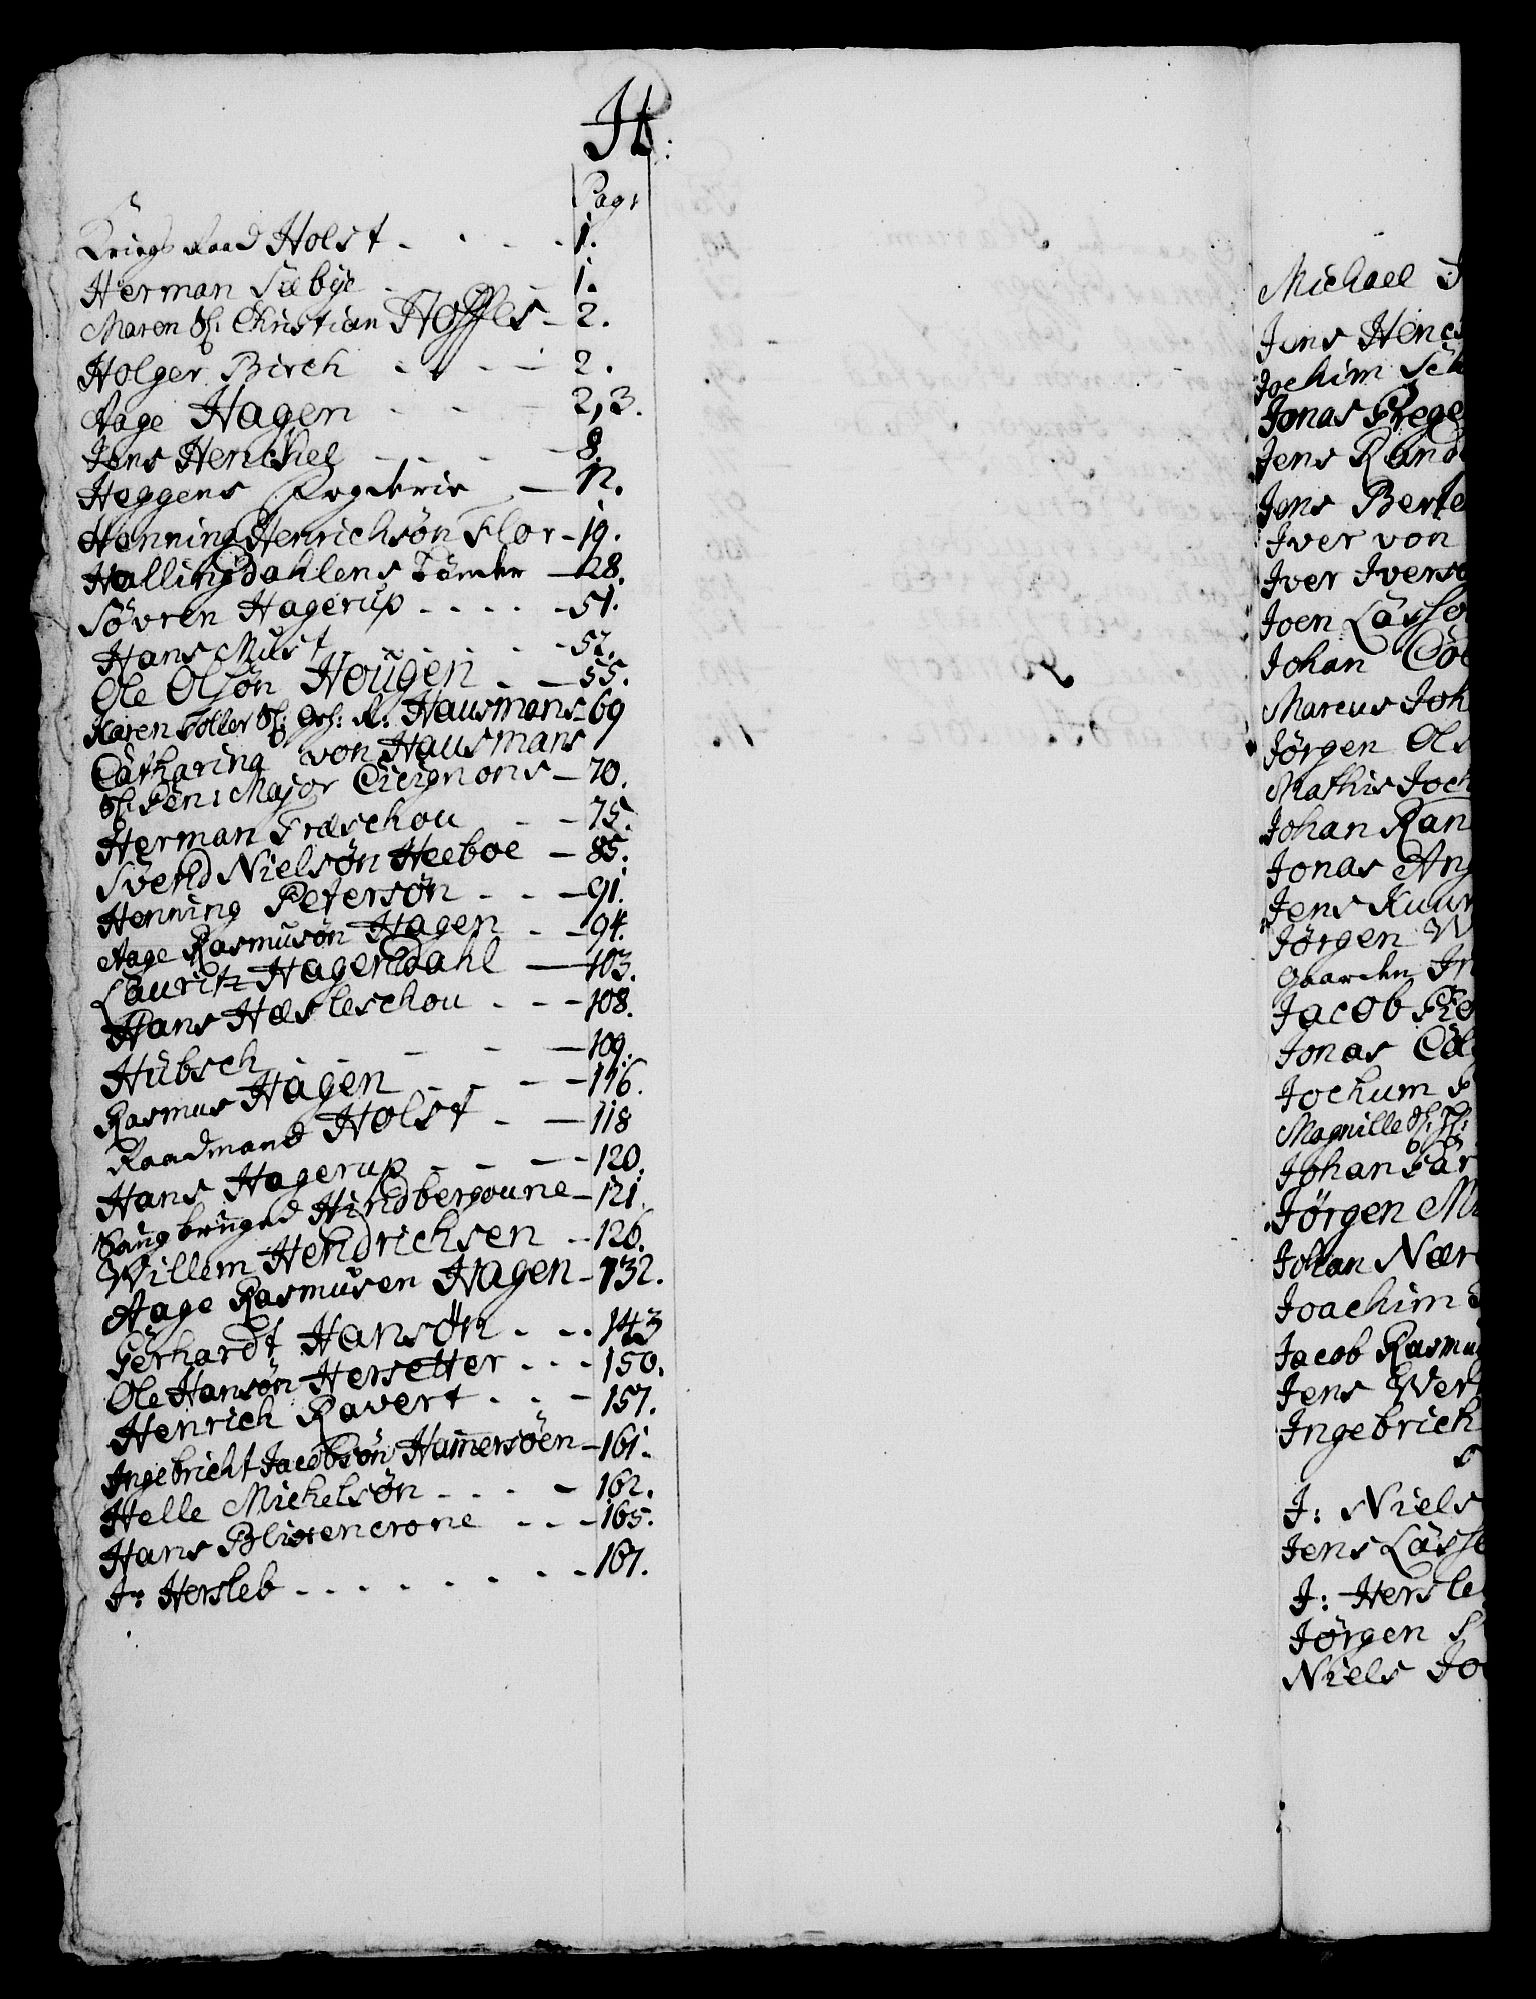 H:
Pag:
Krigs Raad Holst - - - - 1.
Herman Sæbye - - - 1.
Maren Sl: Christian Hoffes - 2.
Holger Birch - - - - 2.
Aage Hagen - - - 2, 3.
Jens Henchel - - - - 8.
Heggens Fogderie - 12.
Henning Henrichsøn Flor - 19.
Hallingdahlens Tömmer - 28.
Søvren Hagerup - - - - 51.
Hans Must - - - - - 52.
Ole Olsøn Hougen - - 55.
Karen Toller Sl: R: Hausmans 69
Catharina von Hausmans
Sl: Gen: Major Cicignons - 70.
Herman Træschou - - 75.
Svend Nielsøn Heeboe - 85.
Henning Petersøn - - - 91.
Aage Rasmusøn Hagen - - 94.
Lauritz Hagerdahl - 103.
Hans Hæsleschou - - - 108.
Hübsch - - - - - 109.
Rasmus Hagen - - - - 116.
Raadmand Holst - - 118
Hans Hagerup - - - - 120.
Hindbergoune - 121.
Willem Hendrichsen - - 126.
Aage Rasmusen Hagen - 132.
Gerhardt Hansøn - - - 143
Ole Hansøn Hersetter - - - 150.
Henrich Ravert - - - 157.
Ingebricht Jacobsøn Hamersöen - 161.
Helle Michelsøn - - - - 162.
Hans Blixencrone - - - 165.
J: Hersleb - - - - - - - - 167.
Michael
Jens Henc
Jochim Sch
Jonas Grege
Jens Rand
Jens Berte
Iver von
Iver Iverso
Joen Lasse
Johan
Marcus Joh
Jørgen Ols
Mathis Joch
Johan Ran
Jonas Ang
Jens Kuur
Jørgen W
Gaarden In
Jacob
Jonas
Jochum
Magnille Sl:
Johan Gar
Jørgen M
Johan Nær
Joachim
Jacob Rasmu
Jens Wer
Ingebrich
J: Niels
Jens Lasse
J: Hersle
Jørgen S
Niels Jo